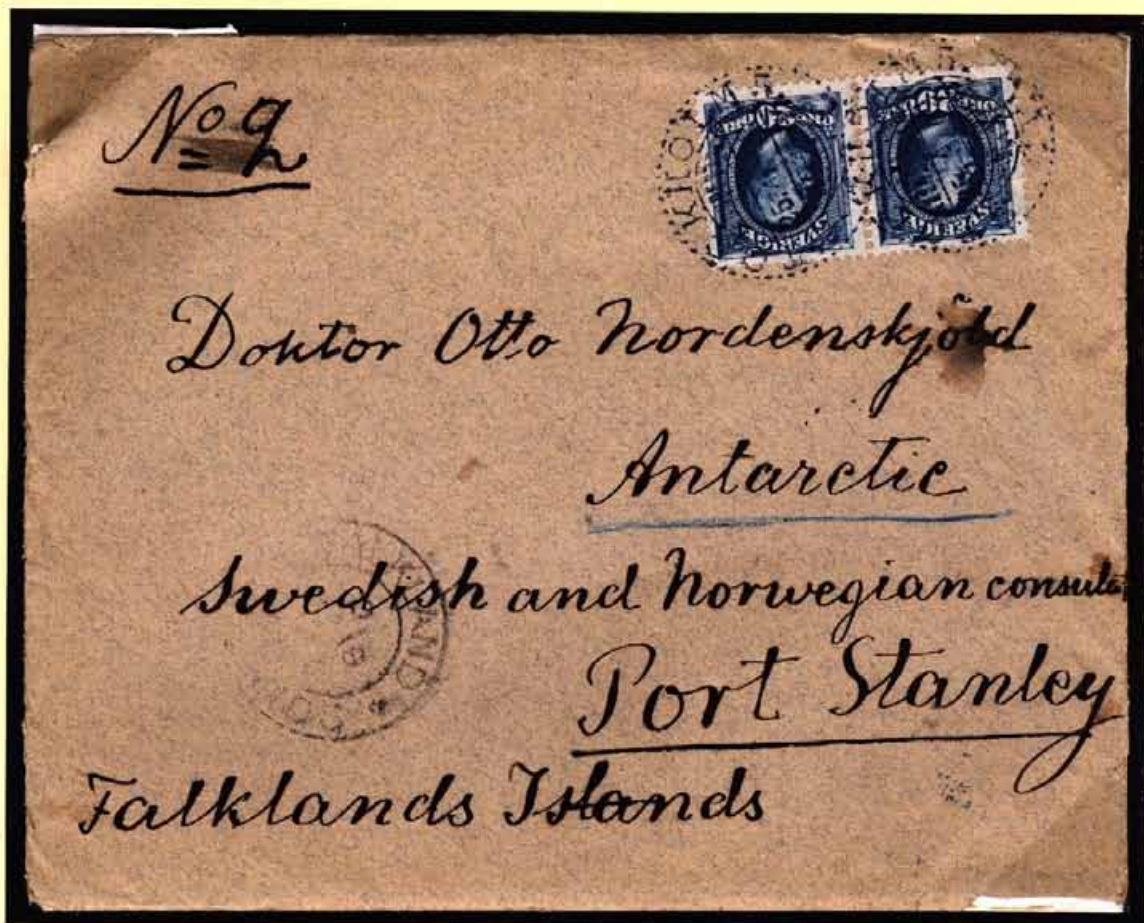 No 9
Doktor Otto Nordenskjöld
Antarctic
Swedish and Norwegian consulat
Port Stanley
Falklands Islands
SVERIGE
SVERIGE